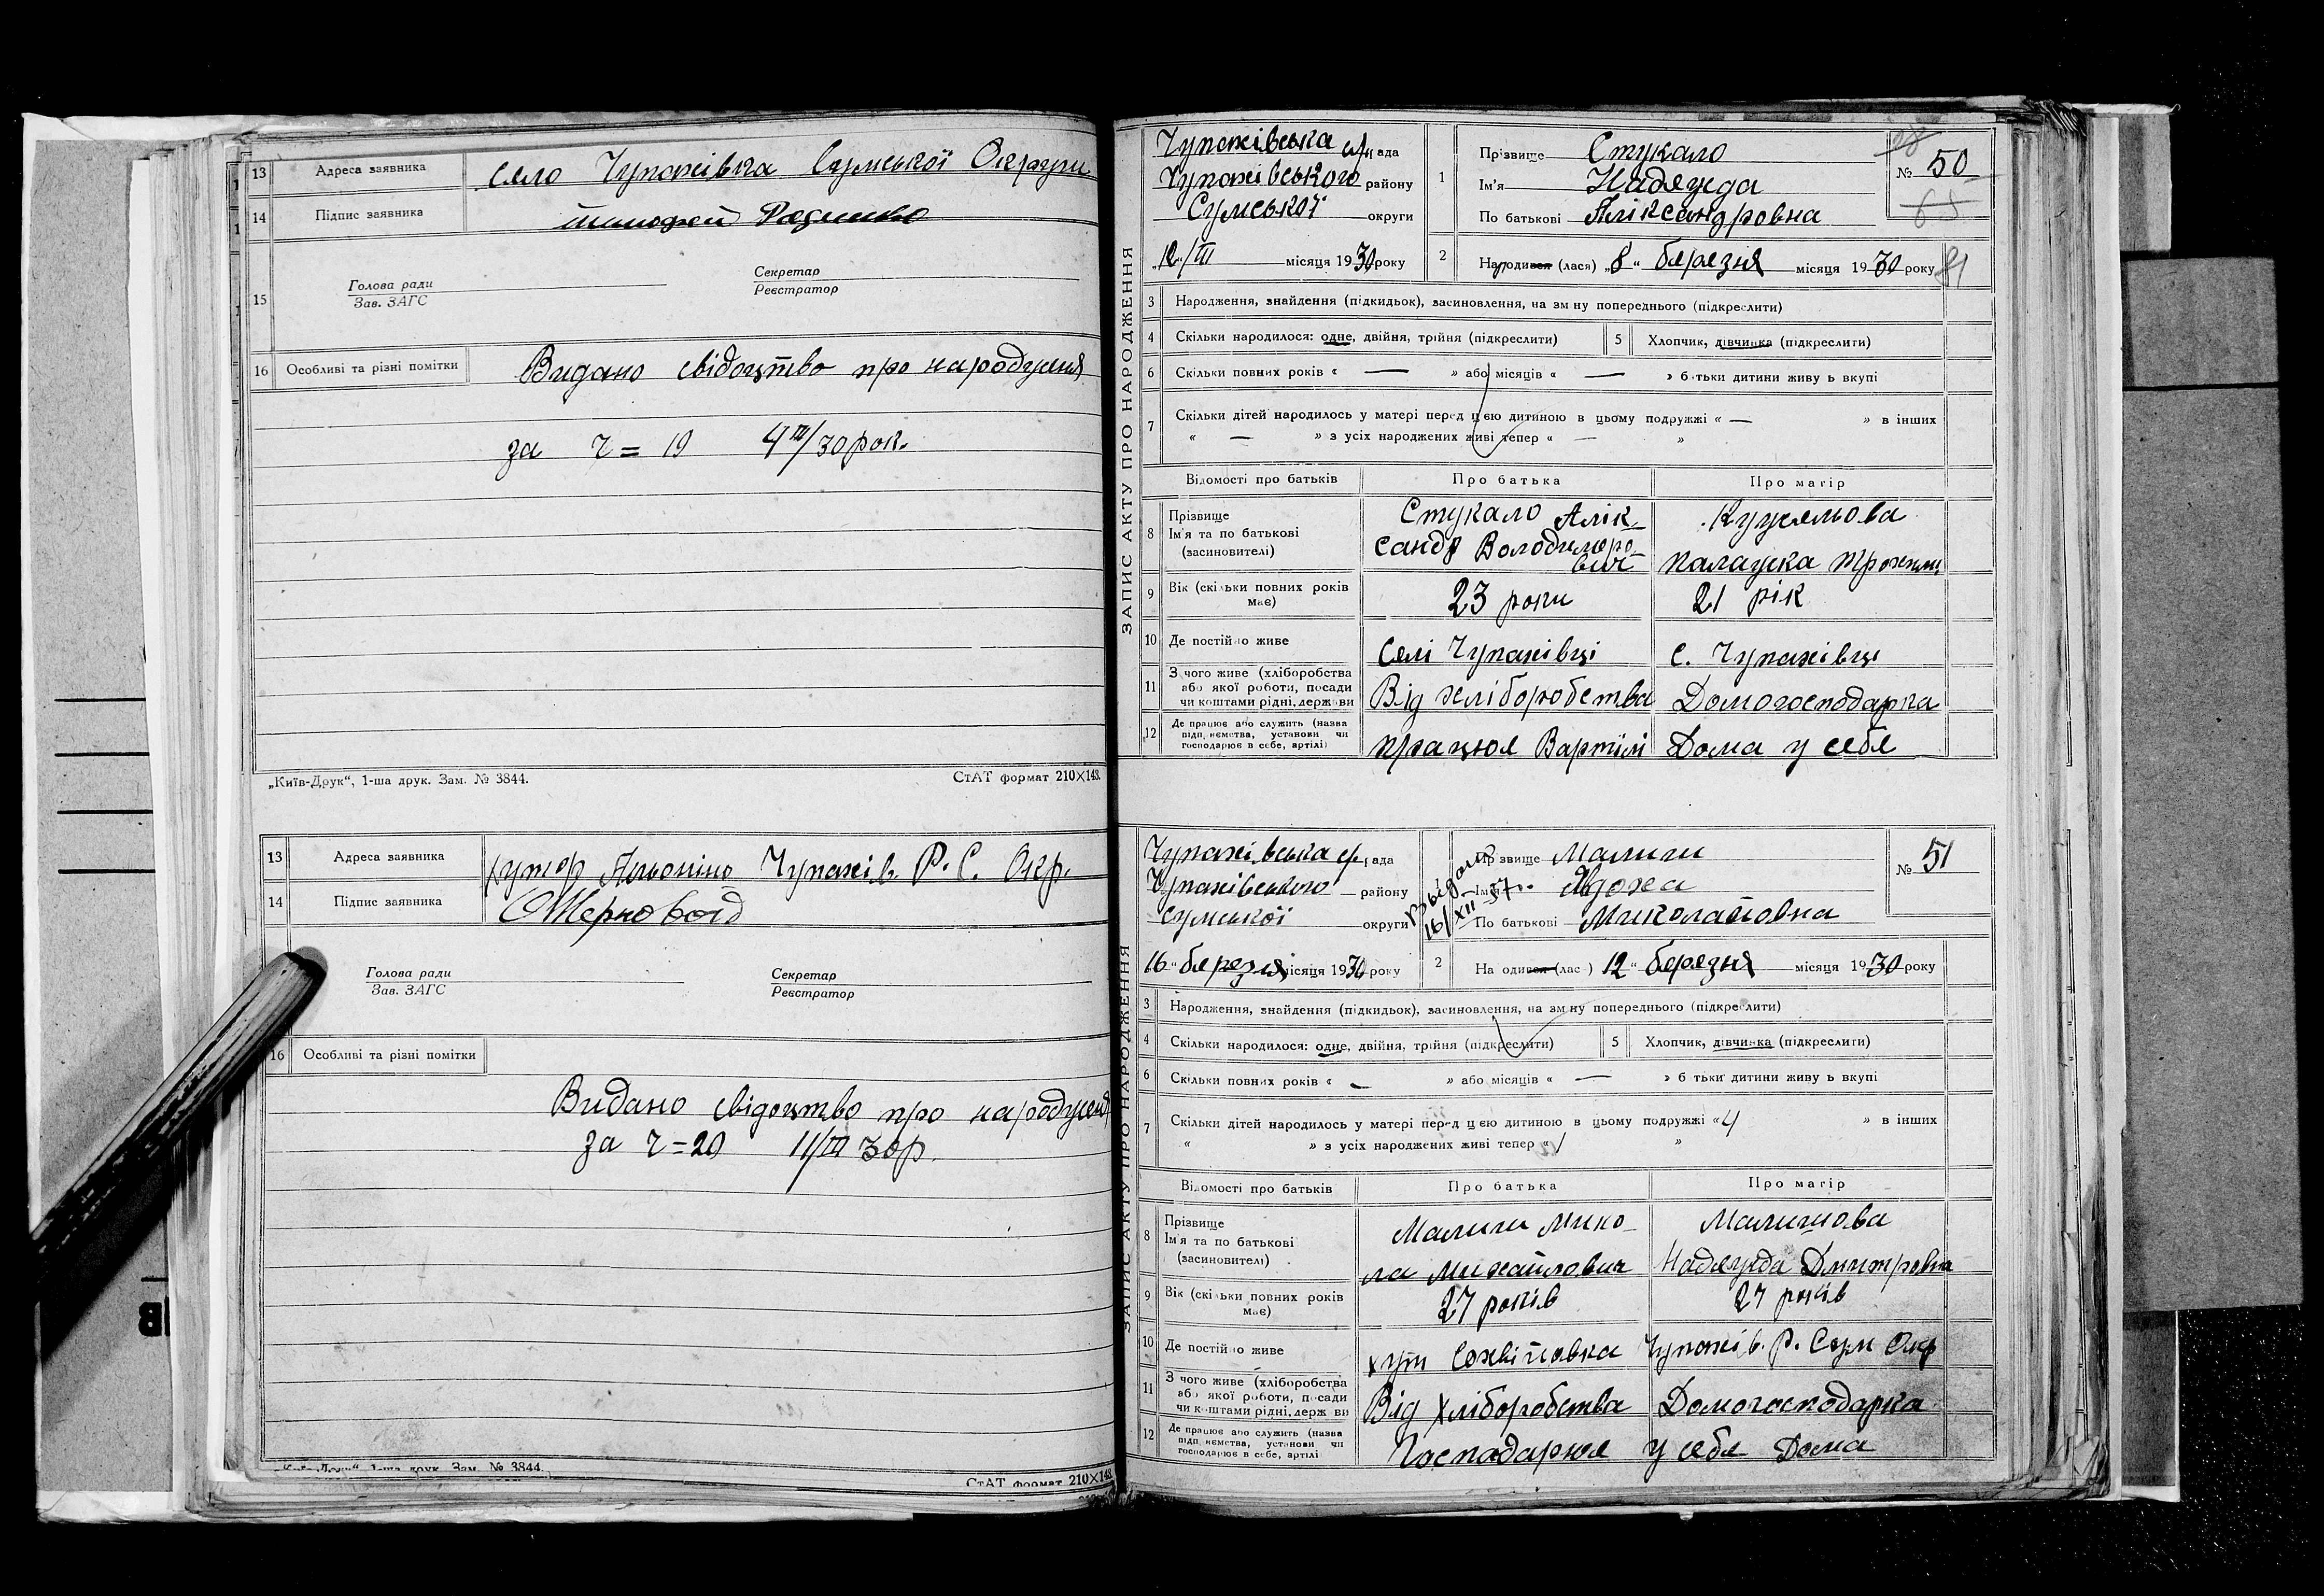 13 Адреса заявника село Чупахівка Сумської Округи
14 Підпис заявника
15 Голова ради Секретар
Зав. ЗАГС Реєстратор
16 Особливі та різні помітки Видано свідоцтво про народження
за ч = 19 4 III/30 рок.
„Київ-Друк“, 1-ша друк. Зам. № 3844. СтАТ формат 210×148.
13 Адреса заявника хутор Чупахів. Р. С. Окр.
14 Підпис заявника
Голова ради Секретар
Зав. ЗАГС Реєстратор
16 Особливі та різні помітки
Видано свідоцтво про народження
за ч = 20 11/III 30 р.
„Київ-Друк“, 1-ша друк. Зам. № 3844.
СтАТ формат 210×148
ЗАПИС АКТУ ПРО НАРОДЖЕННЯ
Чупахівська с/рада
Чупахівського району
Сумської округи
12/III місяця 1930 року
1 Прізвище Стукало
Ім'я Надежда
По батькові Аліксандровна
№ 50
65
81
2 Народився (лася) „8“ березня місяця 1930 року
3 Народження, знайдення (підкидьок), засиновлення, на зміну попереднього (підкреслити)
4 Скільки народилося: одне, двійня, трійня (підкреслити) 5 Хлопчик, дівчинка (підкреслити)
6 Скільки повних років « — » або місяців « — » батьки дитини живуть вкупі
7 Скільки дітей народилось у матері перед цією дитиною в цьому подружжі « — » в інших
« — » з усіх народжених живі тепер « — »
Відомості про батьків Про батька Про матір
8 Прізвище Ім'я та по батькові (засновителі)
Стукало Алік-
сандр Володимеро-
вич
Палажка
9 Вік (скільки повних років має) 23 роки 21 рік
10 Де постійно живе Селі Чупахівці с. Чупахівці
11 З чого живе (хліборобства
або якої роботи, посади
чи коштами рідні, держави
Від хліборобства Домогосподарка
12 Де працює або служить (назва
підприємства, установи чи
господарює в себе, артілі)
працює Вартілі Дома у себе
ЗАПИС АКТУ ПРО НАРОДЖЕННЯ
Чупахівська с/рада
Чупахівського району
Сумської округи
16/XII-57
16 „березня місяця 1930 року
Прізвище Малиш
Ім'я Явдоха
По батькові Миколаївовна
№ 51
2 Народився (лася) 12 “ березня місяця 1930 року
3 Народження, знайдення (підкидьок), засиновлення, на зміну попереднього (підкреслити)
4 Скільки народилося: одне, двійня, трійня (підкреслити) 5 Хлопчик, дівчинка (підкреслити)
6 Скільки повних років « — » або місяців « — » батьки дитини живуть вкупі
7 Скільки дітей народилось у матері перед цією дитиною в цьому подружжі «4 » в інших
« » з усіх народжених живі тепер « 1 »
Відомості про батьків Про батька Про матір
8 Прізвище Ім'я та по батькові (засиновителі)
Малиш Мико- Малишова
ла Михайлович Надежда Дмитровна
9 Вік (скільки повних років має) 27 років 27 років
10 Де постійно живе хут Чупахів. Р. Сум Окр
11 З чого живе (хліборобства
або якої роботи, посади
чи коштами рідні, держави
Від хліборобства Домогосподарка
12 Де працює або служить (назва
підприємства, установи чи
господарює в себе, артілі
Господарює у себе Дома